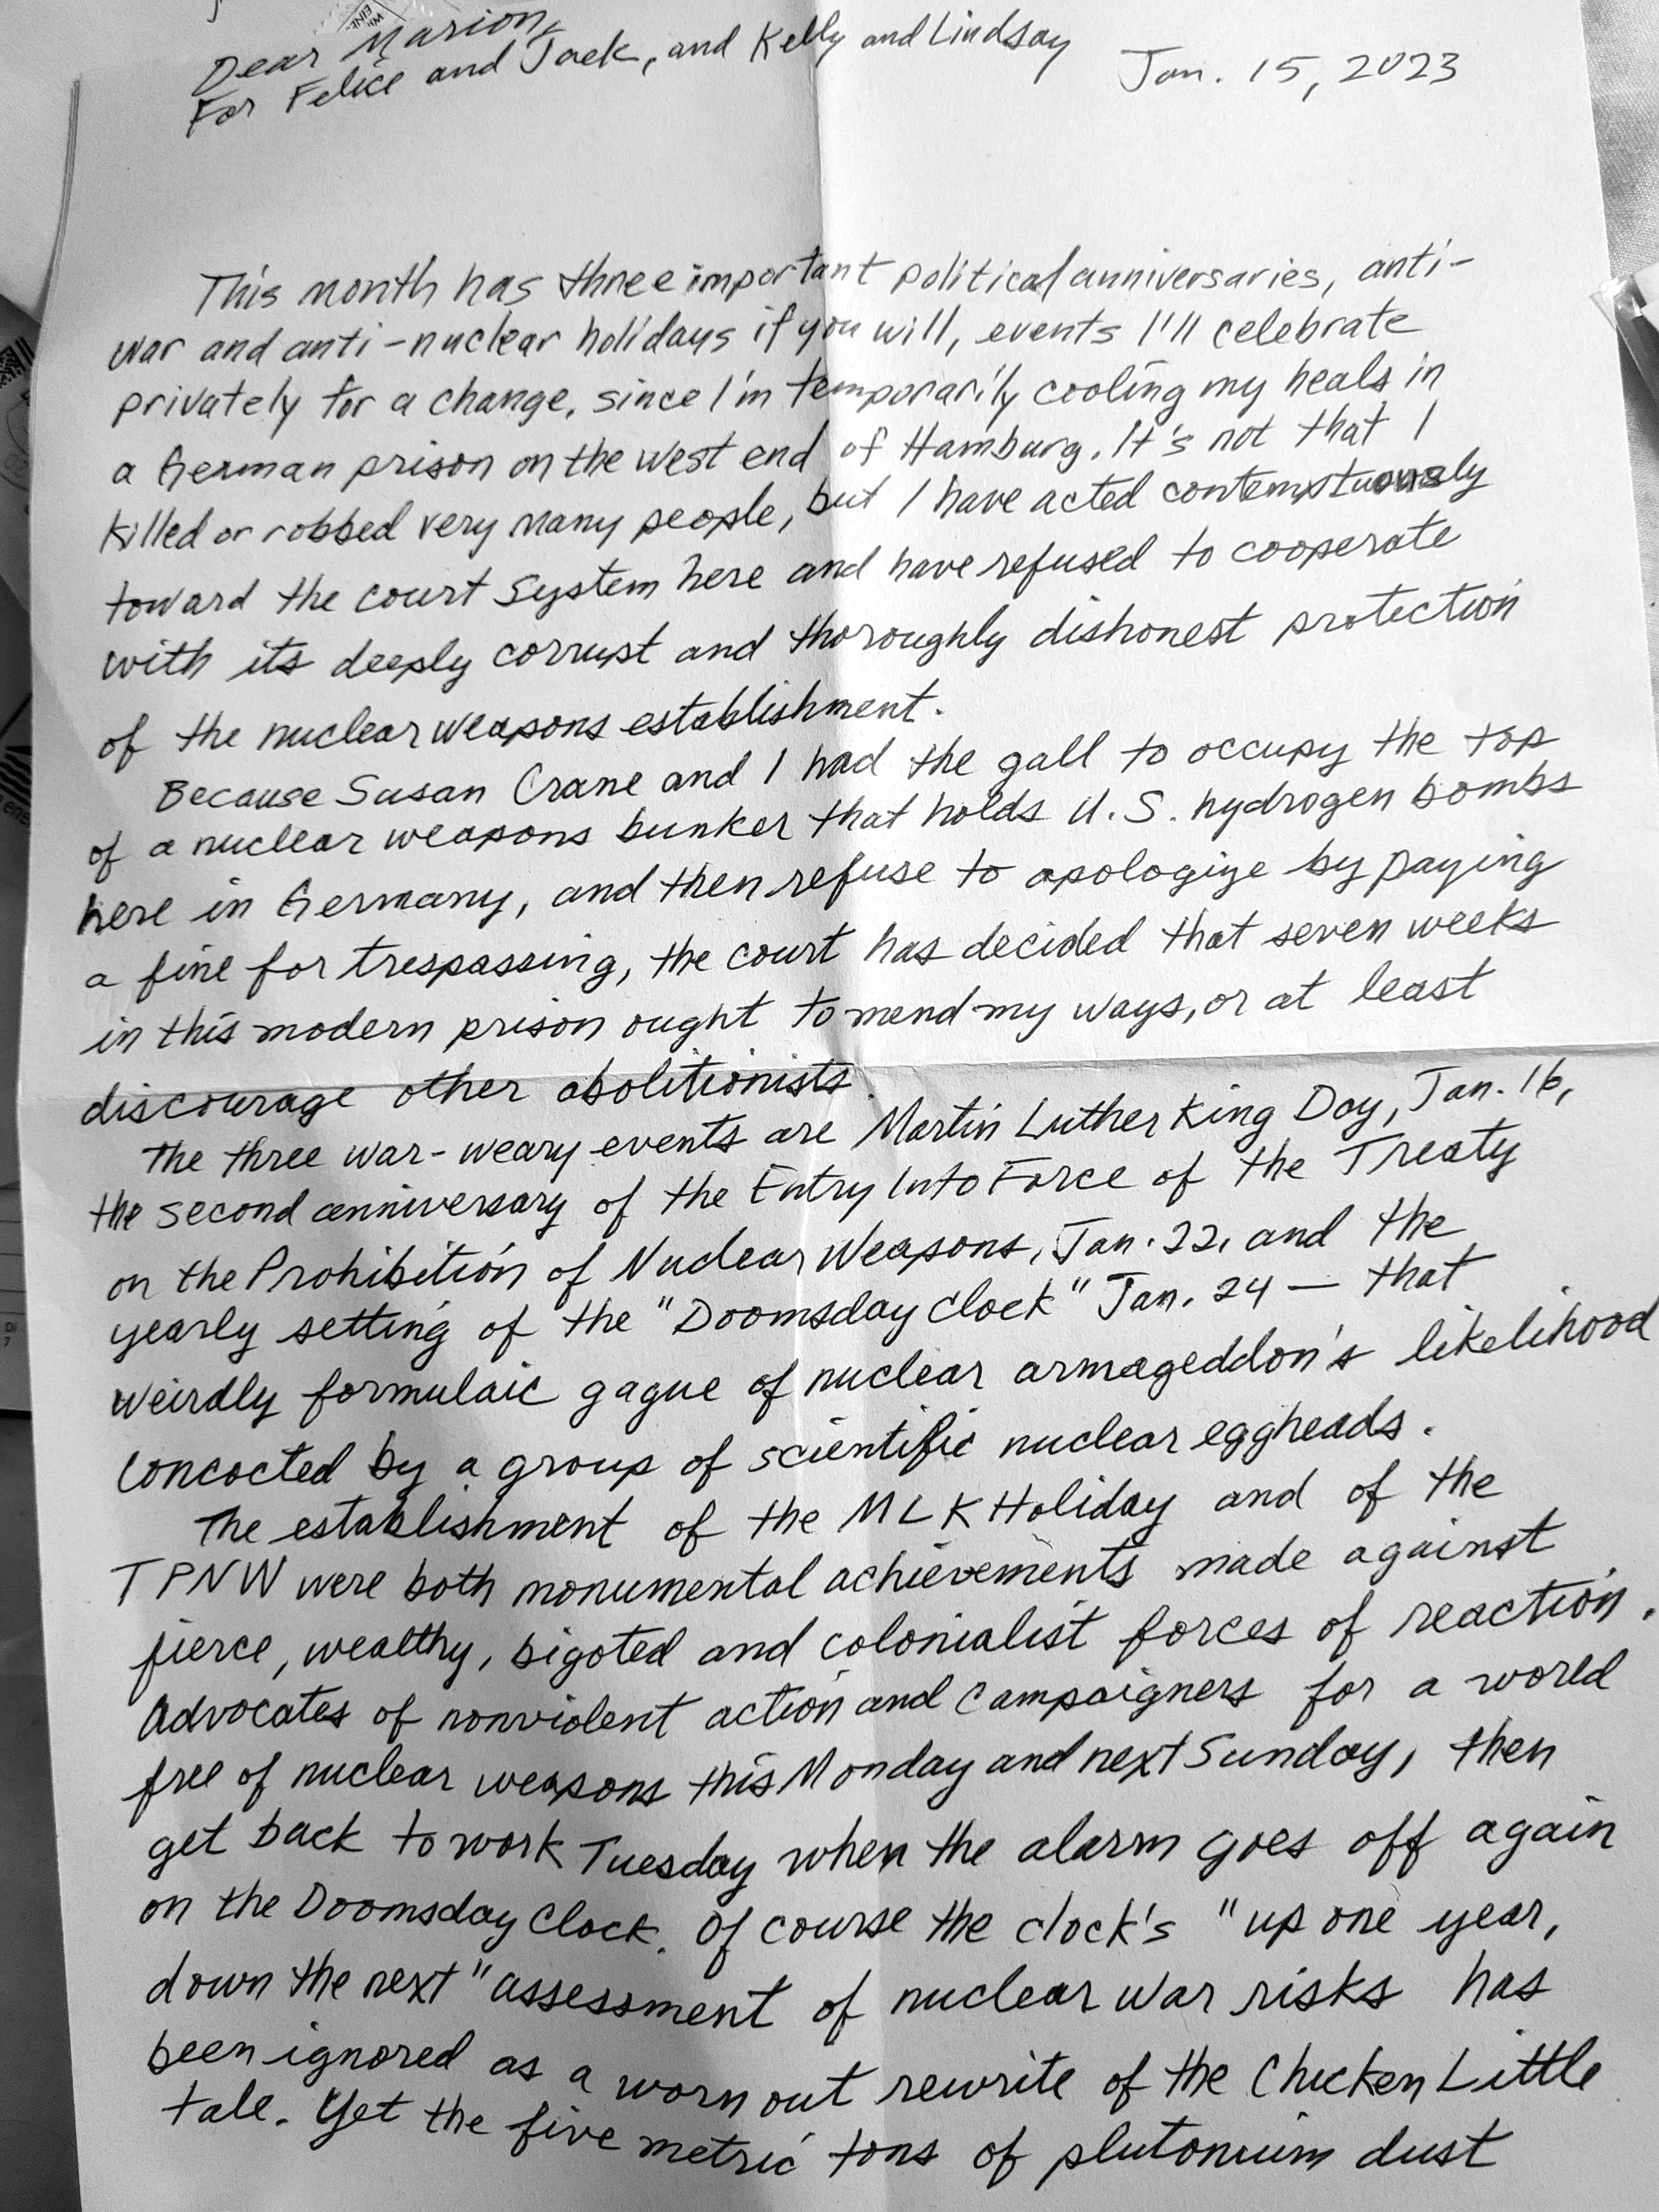 Dear Marion,
For Felice and Jack, and Kelly and Lindsay
Jan. 15, 2023
This month has three important political anniversaries, anti-
war and anti-nuclear holidays if you will, events I'll celebrate
privately for a change, since I'm temporarily cooling my heals in
a German prison on the west end of Hamburg. It's not that I
killed or robbed very many people, but I have acted contemptuously
toward the court system here and have refused to cooperate
with its deeply corrupt and thoroughly dishonest protection
of the nuclear weapons establishment.
Because Susan Crane and I had the gall to occupy the top
of a nuclear weapons bunker that holds U.S. hydrogen bombs
here in Germany, and then refuse to apologize by paying
a fine for trespassing, the court has decided that seven weeks
in this modern prison ought to mend my ways, or at least
discourage other abolitionists.
The three war-weary events are Martin Luther King Day, Jan. 16,
the second anniversary of the Entry Into Force of the Treaty
on the Prohibition of Nuclear Weapons, Jan. 22, and the
yearly setting of the "Doomsday Clock" Jan. 24 — that
weirdly formulaic gague of nuclear armageddon's likelihood
concocted by a group of scientific nuclear eggheads.
The establishment of the MLK Holiday and of the
TPNW were both monumental achievements made against
fierce, wealthy, bigoted and colonialist forces of reaction.
Advocates of nonviolent action and campaigners for a world
free of nuclear weapons this Monday and next Sunday, then
get back to work Tuesday when the alarm goes off again
on the Doomsday Clock. Of course the clock's "up one year,
down the next" assessment of nuclear war risks has
been ignored as a worn out rewrite of the Chicken Little
tale. Yet the five metric tons of plutonium dust